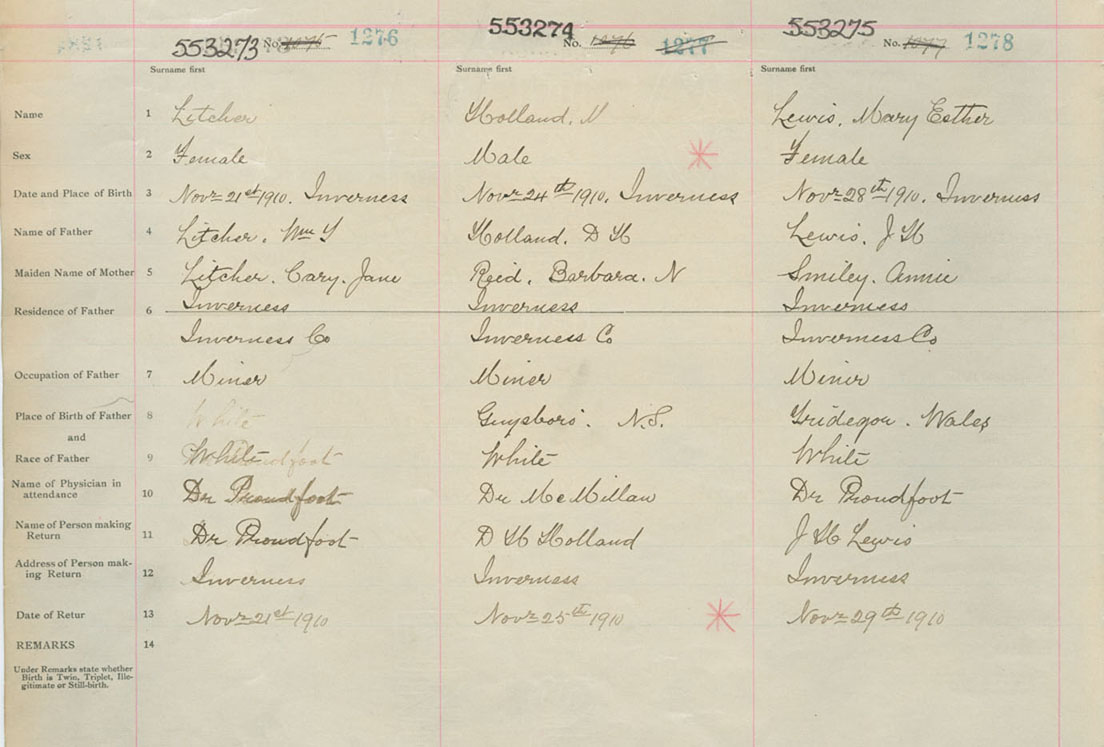 553273 No. 1275 1276
553274 No. 1276 1277
553275 No. 1277 1278
Surname first Surname first Surname first
Name 1 Litcher Holland. N Lewis. Mary Esther
Sex 2 Female Male Female
Date and Place of Birth 3 Novr 21st 1910. Inverness Novr 24th 1910. Inverness Novr 28th 1910. Inverness
Name of Father 4 Litcher. Wm Y Holland. D H Lewis. J H
Maiden Name of Mother 5 Litcher. Cary. Jane Reid. Barbara. N Smiley. Annie
Residence of Father 6 Inverness Inverness Inverness
Inverness Co Inverness Co Inverness Co
Occupation of Father 7 Miner Miner Miner
Place of Birth of Father 8 White Guysboro'. N.S. Wales
and
Race of Father 9 White White White
Name of Physician in
attendance 10 Dr Proudfoot Dr McMillan Dr Proudfoot
Name of Person making
Return 11 Dr Proudfoot D H Holland J H Lewis
Address of Person mak-
ing Return 12 Inverness Inverness Inverness
Date of Retur 13 Novr 21st 1910 Novr 25th 1910 Novr 29th 1910
REMARKS 14
Under Remarks state whether
Birth is Twin, Triplet, Ille-
gitimate or Still-birth.